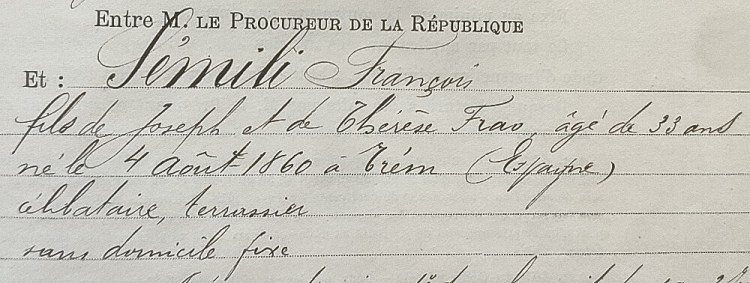 Entre M. le Procureur de la République
Et : Sémili François
fils de Joseph et de Thérèse Frao, âgé de 33 ans
né le 4 août 1860 à Trém (Espagne)
célibataire, terrassier
sans domicile fixe